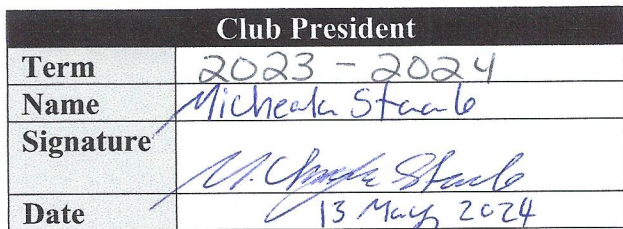 Club President
Term 2023 - 2024
Name Micheala Staale
Signature
Date 13 May 2024